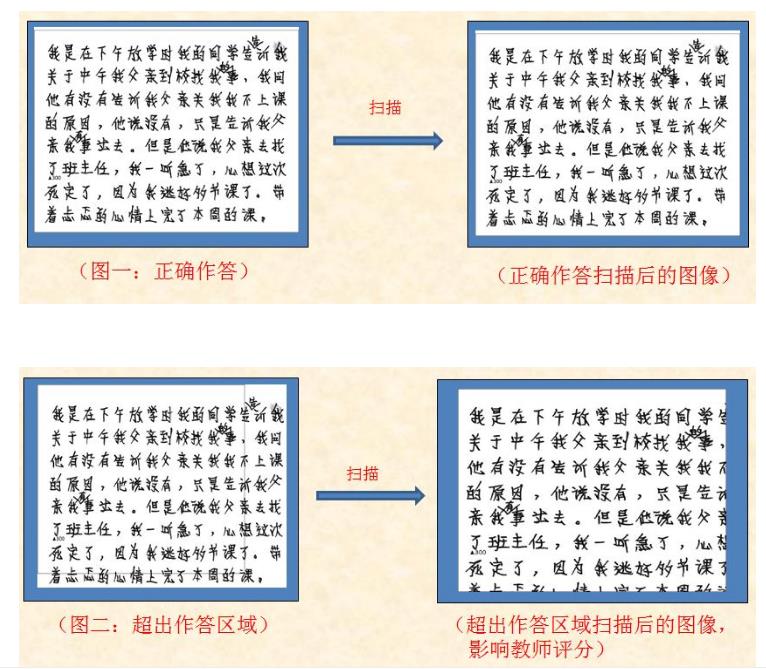 我是在下午放学时我的同学告诉我
关于中午我父亲到校找我的事，我问
他有没有告诉我父亲关我我不上课
的原因，他说没有，只是告诉我父
亲我有事出去。但是他说我父亲去找
了班主任，我一听急了，心想这次
▲300
死定了，因为我逃好多节课了。带
着忐忑的心情上完了本周的课。
扫描
我是在下午放学时我的同学告诉我
关于中午我父亲到校找我的事，我问
他有没有告诉我父亲关我我不上课
的原因，他说没有，只是告诉我父
亲我有事出去。但是他说我父亲去找
了班主任，我一听急了，心想这次
▲300
死定了，因为我逃好多节课了。带
着忐忑的心情上完了本周的课。
（图一：正确作答）
（正确作答扫描后的图像）
我是在下午放学时我的同学告诉我
关于中午我父亲到校找我的事，我问
他有没有告诉我父亲关我我不上课
的原因，他说没有，只是告诉我父
亲我有事出去。但是他说我父亲去找
了班主任，我一听急了，心想这次
▲300
死定了，因为我逃好多节课了。带
着忐忑的心情上完了本周的课。
扫描
我是在下午放学时我的同学
关于中午我父亲到校找我的事，
他有没有告诉我父亲关我我不
的原因，他说没有，只是告诉
亲我有事出去。但是他说我父亲
了班主任，我一听急了，心想
▲300
死定了，因为我逃好多节课了
着忐忑的心情上完了本周的
（图二：超出作答区域）
（超出作答区域扫描后的图像，
影响教师评分）